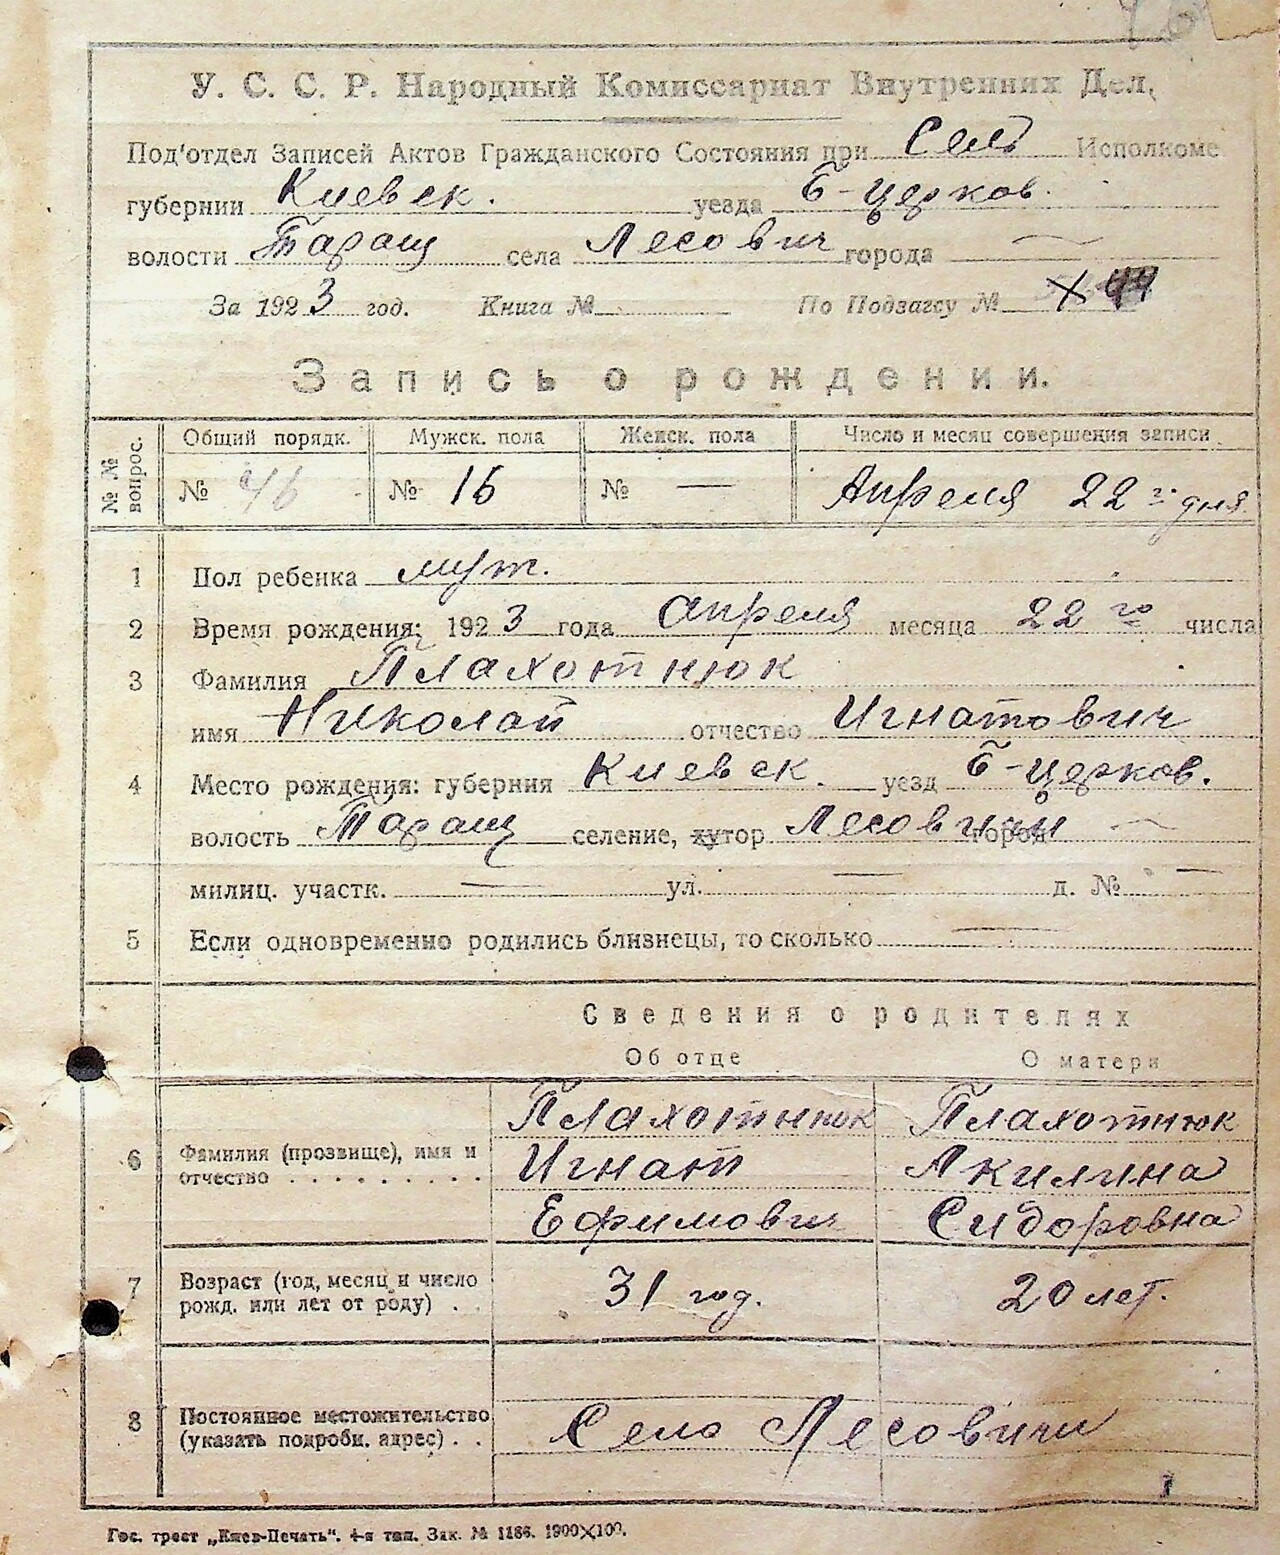 У. С. С. Р. Народный Комиссариат Внутренних Дел.
Под'отдел Записей Актов Гражданского Состояния при Сель Исполкоме
губернии Киевск. уезда Б-церков.
волости Таращ села Лесович города —
За 1923 год. Книга № По Подзагсу № 44
Запись о рождении.
№ № вопрос. Общий порядк. Мужск. пола Женск. пола Число и месяц совершения записи
№ 46 № 16 № — Апреля 22го дня
1 Пол ребенка муж.
2 Время рождения: 1923 года Апреля месяца 22го числа
3 Фамилия Плахотнюк
имя Николай отчество Игнатович
4 Место рождения: губерния Киевск. уезд Б-церков.
волость Таращ селение, хутор Лесовичи город —
милиц. участк. — ул. — д. № —
5 Если одновременно родились близнецы, то сколько —
Сведения о родителях
Об отце О матери
Плахотнюк Плахотнюк
6 Фамилия (прозвище), имя и Игнат Акилина
отчество . . . . . . . . . . Ефимович Сидоровна
7 Возраст (год, месяц и число 31 год. 20 лет.
рожд. или лет от роду) . .
8 Постоянное местожительство Село Лесовичи
(указать подробн. адрес) . .
Гос. трест „Киев-Печать". 4-я тип. Зак. № 1186. 1900×100.